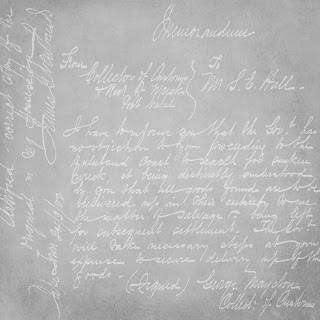 Memorandum
From
Collector of Customs
Port Natal
To
Mr S. E. Hall -
I have to inform you that the Gov.t has
no objection to you proceeding to the
Zululand Coast to search for sunken
it being distinctly understood
by you that all goods found are to be
delivered up in their entirety to me
the matter of salvage being left
for subsequent settlement. The Gov.t
will take necessary steps at your
expense to secure delivery up of the
Goods. -
(Signed) George Mayston
Collect. of Customs
Certified correct copy of the